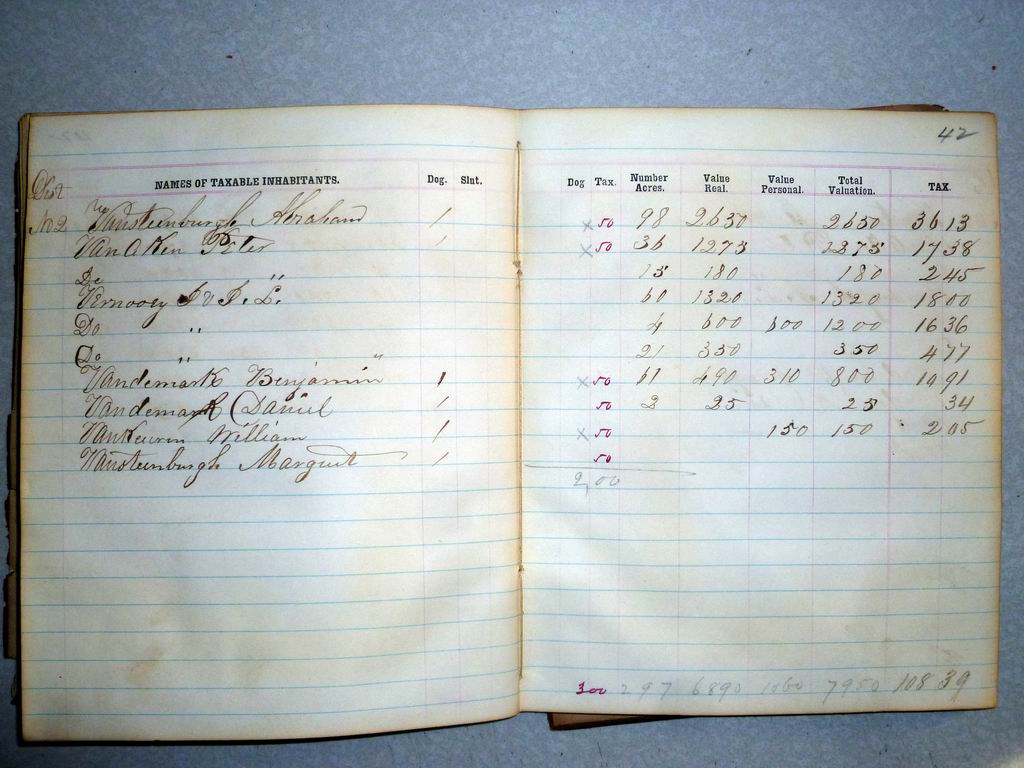 42
NAMES OF TAXABLE INHABITANTS. Dog. Slut. Dog Tax. Number Acres. Value Real. Value Personal. Total Valuation. TAX.
Dist
No 2 Vansteenburgh Abraham 1 x 50 98 2650 2650 36 13
Van Aken Peter 1 x 50 36 1275 1275 17 38
Do " 15 180 180 2 45
Vernooy J & J. L. 60 1320 1320 18 00
Do " 4 600 600 1200 16 36
Do " " 21 350 350 4 77
Vandemark Benjamin 1 x 50 61 490 310 800 10 91
Vandemark Daniel 1 50 2 25 25 34
VanKeuren William 1 x 50 150 150 2 05
Vansteenburgh Margret 1 50
2,00
3 00 297 6890 1060 7950 108 39